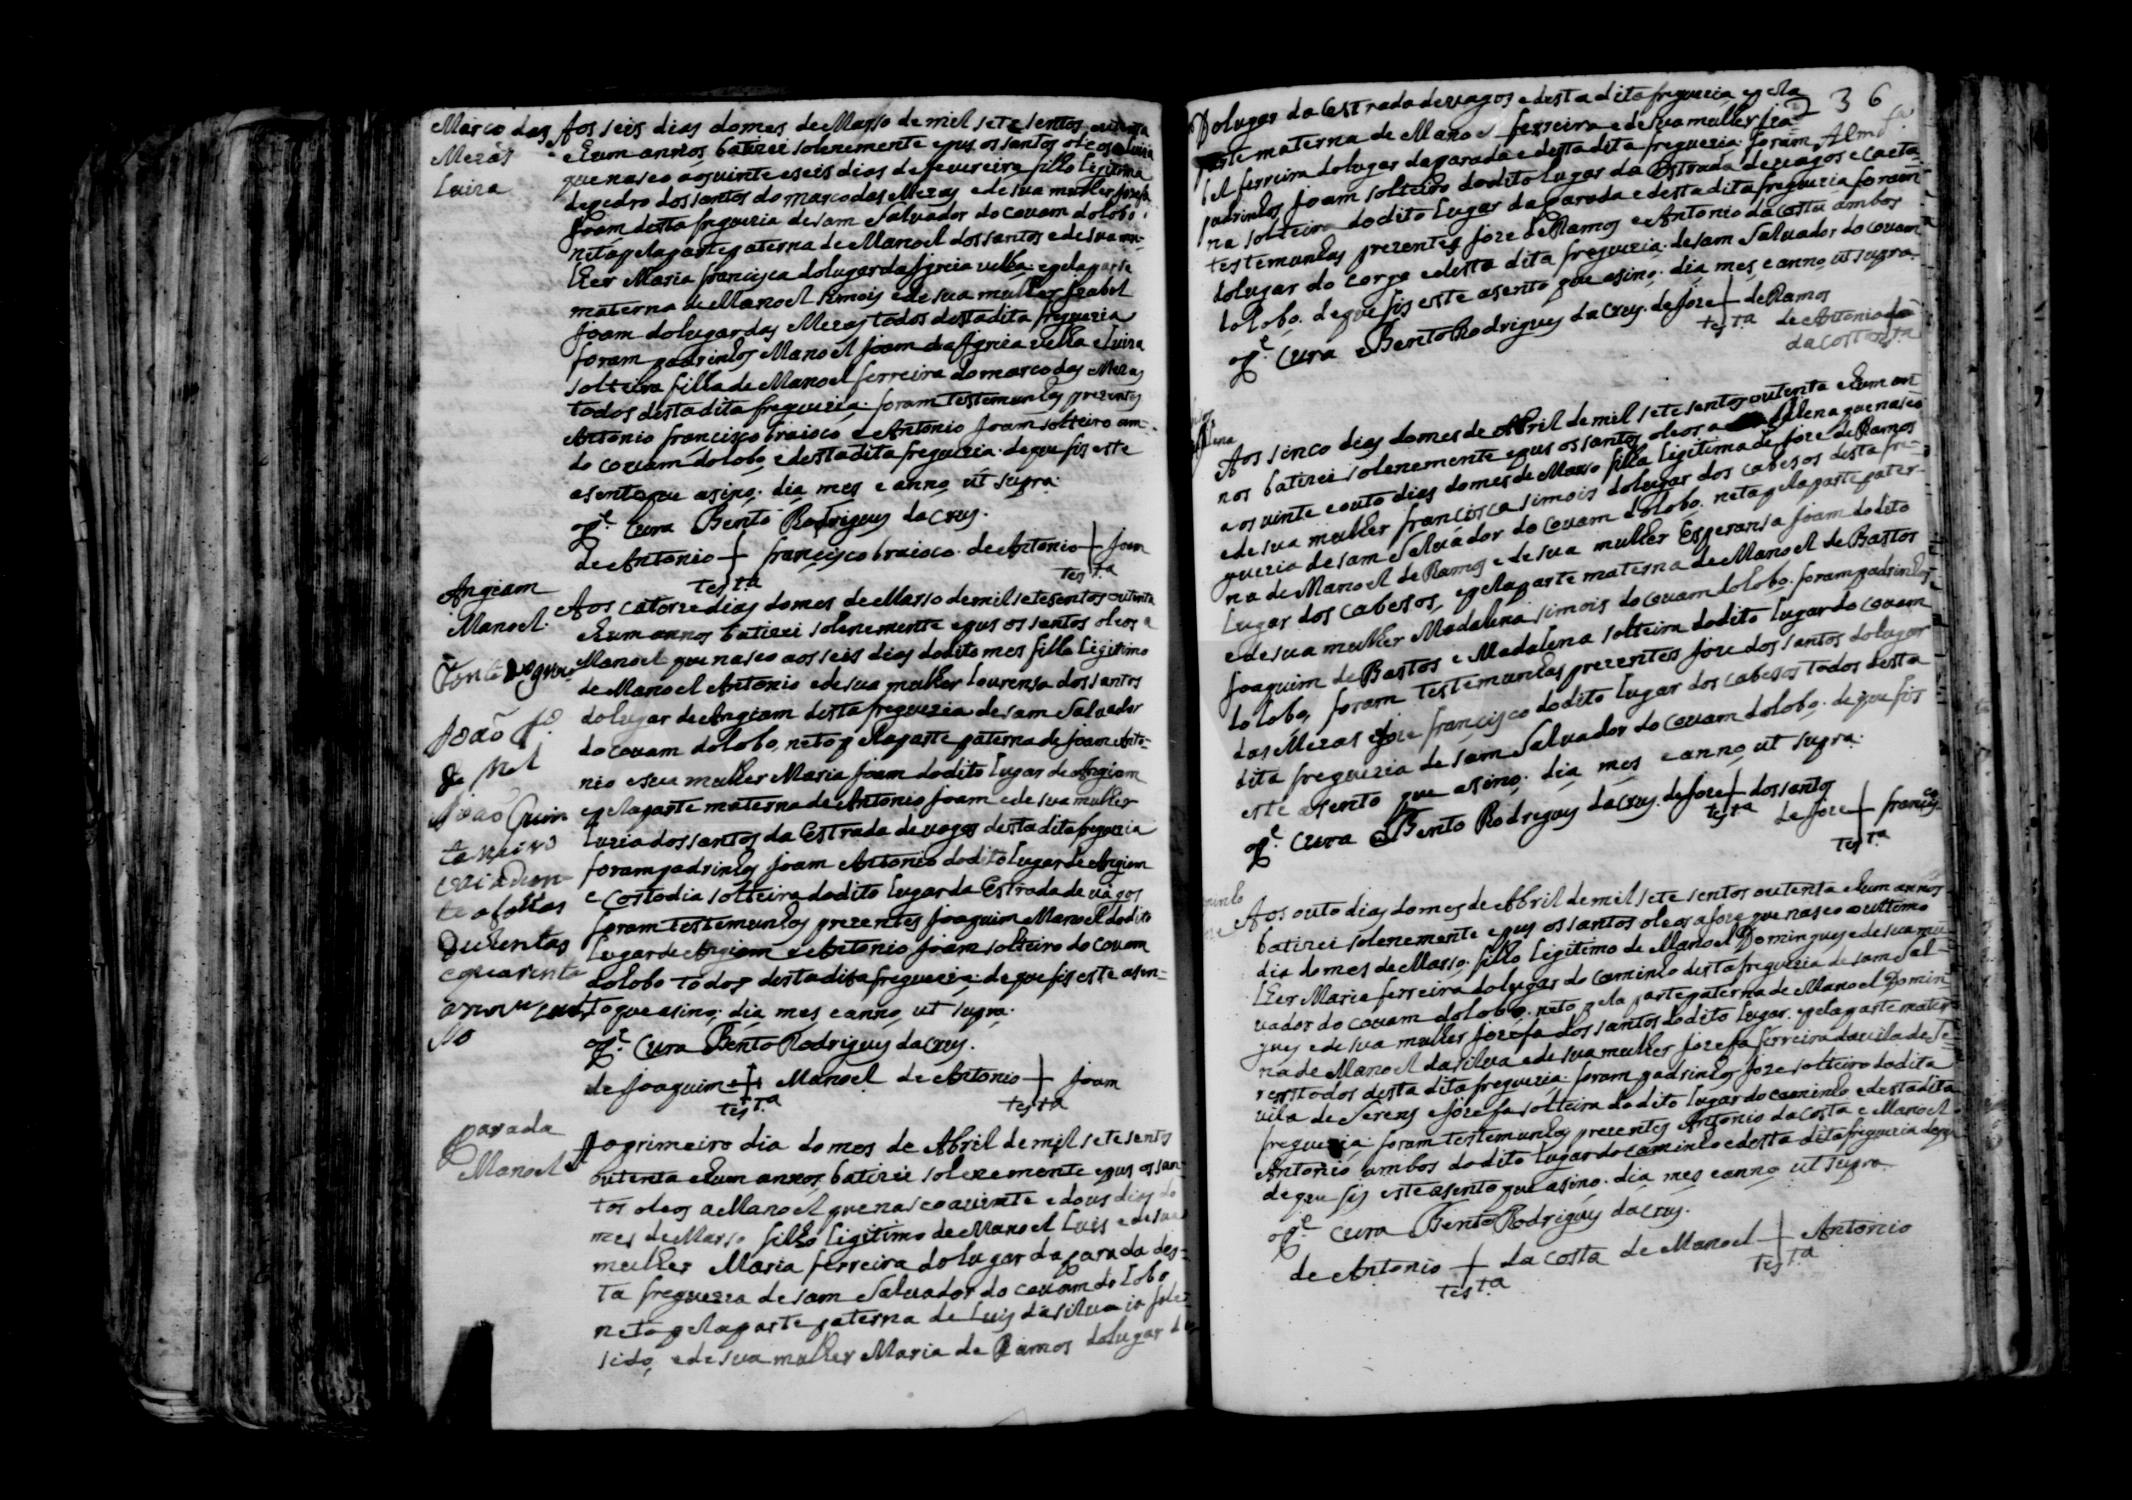 Marco das
Mezas
Luiza
Aos seis dias do mes de Marso de mil sete sentos outenta
e hum annos batizei solenemente e pus os santos oleos a Luiza
que nasco aos vinte e seis dias de fevureiro filha Ligitima
de pedro dos santos do marco das Mezas e de sua mulher Josefa
Joam desta freguezia de sam Salvador do covam do lobo
neta pela parte paterna de Manoel dos santos e de sua mu-
lher Maria francisca do lugar da Igreia velha e pela parte
materna de Manoel simois e de sua mulher Izabel
Joam do lugar das Mezas todos desta dita freguezia
foram padrinhos Manoel Joam da Igreia velha e Luiza
solteira filha de Manoel ferreira do marco das Mezas
todos desta dita freguezia. foram testemunhas prezentes
Antonio francisco braioco e Antonio Joam solteiro am-
do covam do lobo e desta dita freguezia. de que fis este
asento que asino. dia mes e anno ut supra.
o Pe. Cura Bento Rodrigues da crus.
de Antonio + francisco braioco. de Antonio + Joam
testa testa
Angeam
Manoel.
João fo.
de Mel
João Quin
taneiro
duzentas
e quarenta
Aos catorze dias do mes de Marso de mil sete sentos outenta
e hum annos batizei solenemente e pus os santos oleos a
Manoel que nasco aos seis dias do dito mes filho Ligitimo
de Manoel Antonio e de sua mulher Lourensa dos santos
do lugar de Angeam desta freguezia de sam Salvador
do covam do lobo, neto pela parte paterna de Joam Anto-
nio e sua mulher Maria Joam do dito lugar de Angiam
e pela parte materna de Antonio Joam e de sua mulher
Luzia dos santos da Estrada de vagos desta dita freguezia
foram padrinhos Joam Antonio do dito lugar de Angiam
e Costodia solteira do dito lugar da Estrada de vagos
foram testemunhas prezentes Joaquim Manoel do dito
lugar de Angiam e Antonio Joam solteiro do covam
do lobo todos desta dita freguezia. de que fis este asen-
to que asino. dia mes e anno ut supra.
o Pe. Cura Bento Rodrigues da crus.
de Joaquim + Manoel de Antonio + Joam
testa testa
parada
Manoel
Ao primeiro dia do mes de Abril de mil sete sentos
outenta e hum annos batizei solenemente e pus os san-
tos oleos a Manoel que nasco a vinte e dous dias do
mes de Marso filho Ligitimo de Manoel Luis e de sua
mulher Maria ferreira do lugar da parada des-
ta freguezia de sam Salvador do covam do lobo
neto pela parte paterna de Luis da silua ia fale-
sido, e de sua mulher Maria de Ramos do lugar da
36
Do lugar da Estrada de vagos e desta dita freguezia e pela
parte materna de Manoel ferreira e de sua mulher Iza-
bel ferreira do lugar da parada e desta dita freguezia. foram
padrinhos Joam solteiro do dito lugar da Estrada de vagos e Caeta-
na solteira do dito lugar da parada e desta dita freguezia foram
testemunhas prezentes Joze de Ramos e Antonio da costa ambos
do lugar do corgo e desta dita freguezia. de sam Salvador do covam
do lobo. de que fis este asento que asino. dia mes e anno ut supra.
o Pe. Cura Bento Rodrigues da crus. de Joze + de Ramos
testa de Antonio +
da costa testa
Aos sinco dias do mes de Abril de mil sete sentos outenta e hum an-
nos batizei solenemente e pus os santos oleos a Madalena que nasco
aos vinte e outo dias do mes de Marso filha Ligitima de Joze de Ramos
e de sua mulher francisca simois do lugar dos cabesos desta fre-
guezia de sam Salvador do covam do lobo. neta pela parte pater-
na de Manoel de Ramos e de sua mulher Esperansa Joam do dito
Lugar dos cabesos, e pela parte materna de Manoel de Bastos
e de sua mulher Madalena simois do covam do lobo. foram padrinhos
Joaquim de Bastos e Madalena solteira do dito lugar do covam
do lobo, foram testemunhas prezentes Joze dos santos do lugar
das Mezas e Joze francisco do dito lugar dos cabesos todos desta
dita freguezia de sam Salvador do covam do lobo. de que fis
este asento que asino. dia mes e anno ut supra.
o Pe. Cura Bento Rodrigues da crus. de Joze + dos santos
testa de Joze + francisco
testa
Aos outo dias do mes de Abril de mil sete sentos outenta e hum annos
batizei solenemente e pus os santos oleos a Joze que nasco o ultimo
dia do mes de Marso. filho Ligitimo de Manoel Domingues e de sua mu-
lher Maria ferreira do lugar do caminho desta freguezia de sam Sal-
vador do covam do lobo. neto pela parte paterna de Manoel Domin-
gues e de sua mulher Jozefa dos santos do dito lugar. e pela parte mater-
na de Manoel da silua e de sua mulher Jozefa ferreira da vila de Se-
rens todos desta dita freguezia. foram padrinhos Joze solteiro da dita
vila de Serens e Jozefa solteira do dito lugar do caminho e desta dita
freguezia. foram testemunhas prezentes Antonio da costa e Manoel
Antonio ambos do dito lugar do caminho e desta dita freguezia
de que fis este asento que asino. dia mes e anno ut supra.
o Pe. Cura Bento Rodrigues da crus.
de Antonio + da costa de Manoel + Antonio
testa testa